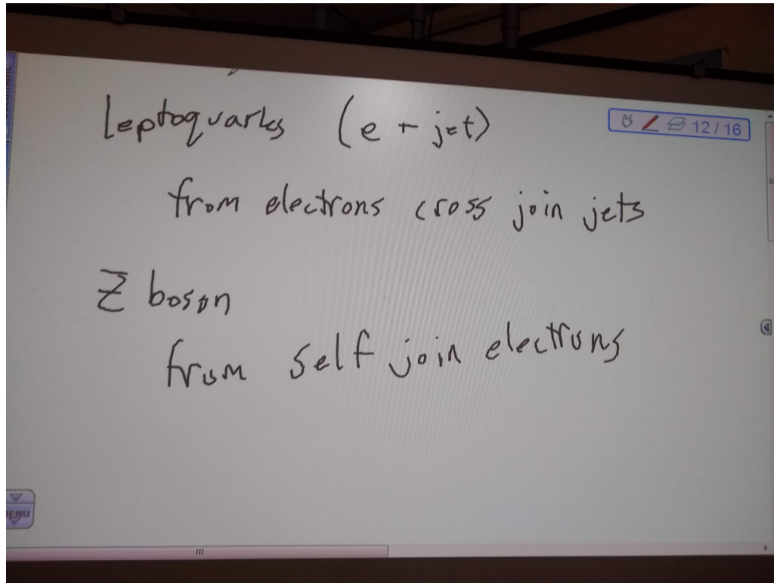 Leptoquarks (e + jet)
12 / 16
from electrons cross join jets
Z boson
from self join electrons
MENU